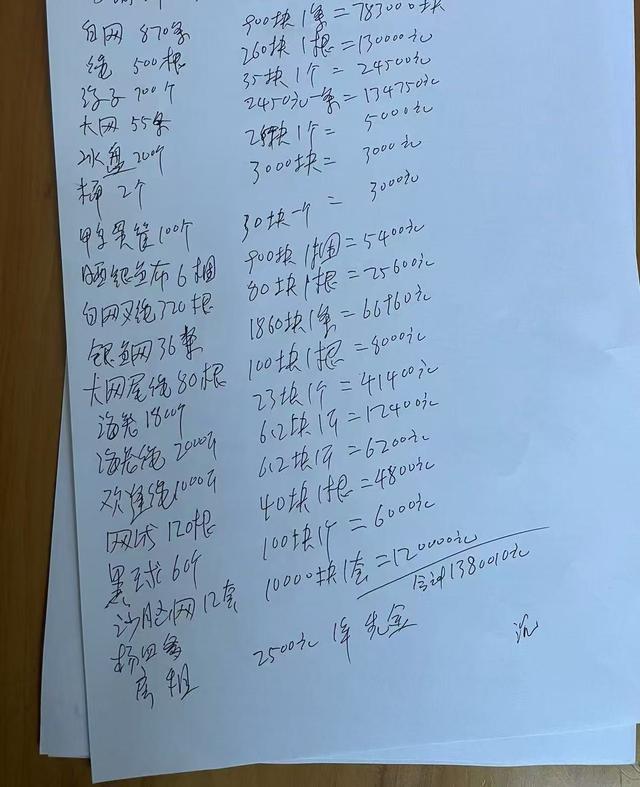 白网 870条 900块1条=783000块
绳 500根 260块1根=130000元
700个 35块1个=24500元
大网 55条 2450元一条=134750元
冰盘200个 25块1个=5000元
桶 2个 3000块=3000元
鸭蛋筐100个 30块一个=3000元
晒银鱼布6捆 900块1捆=5400元
白网叉绳320根 80块1根=25600元
银鱼网36条 1860块1条=66960元
大网尾绳80根 100块1根=8000元
1800个 23块1个=41400元
2000斤 6.2块1斤=12400元
1000斤 6.2块1斤=6200元
网球120根 40块1根=4800元
黑球60个 100块1个=6000元
网12套 10000块1套=120000元
合计1380010元
杨四
房租 2500元1年 先金